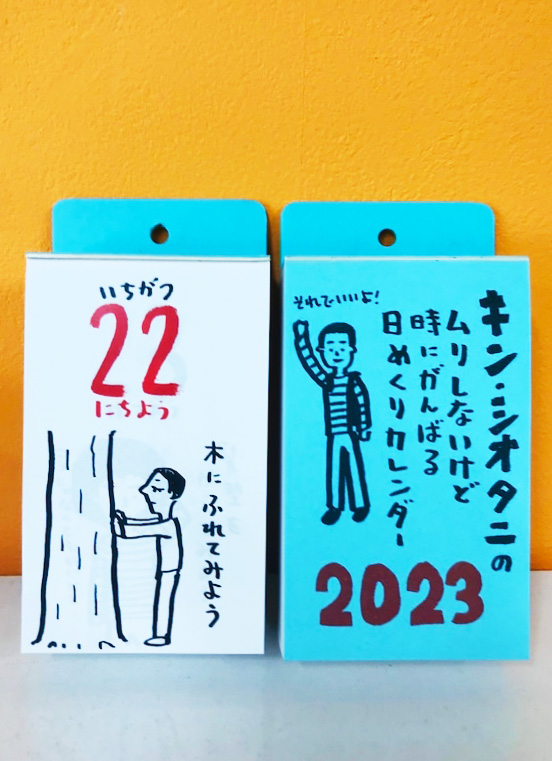 いちがつ
22
にちよう
木にふれてみよう
キン・シオタニの
ムリしないけど
時にがんばる
日めくりカレンダー
それでいいよ!
2023